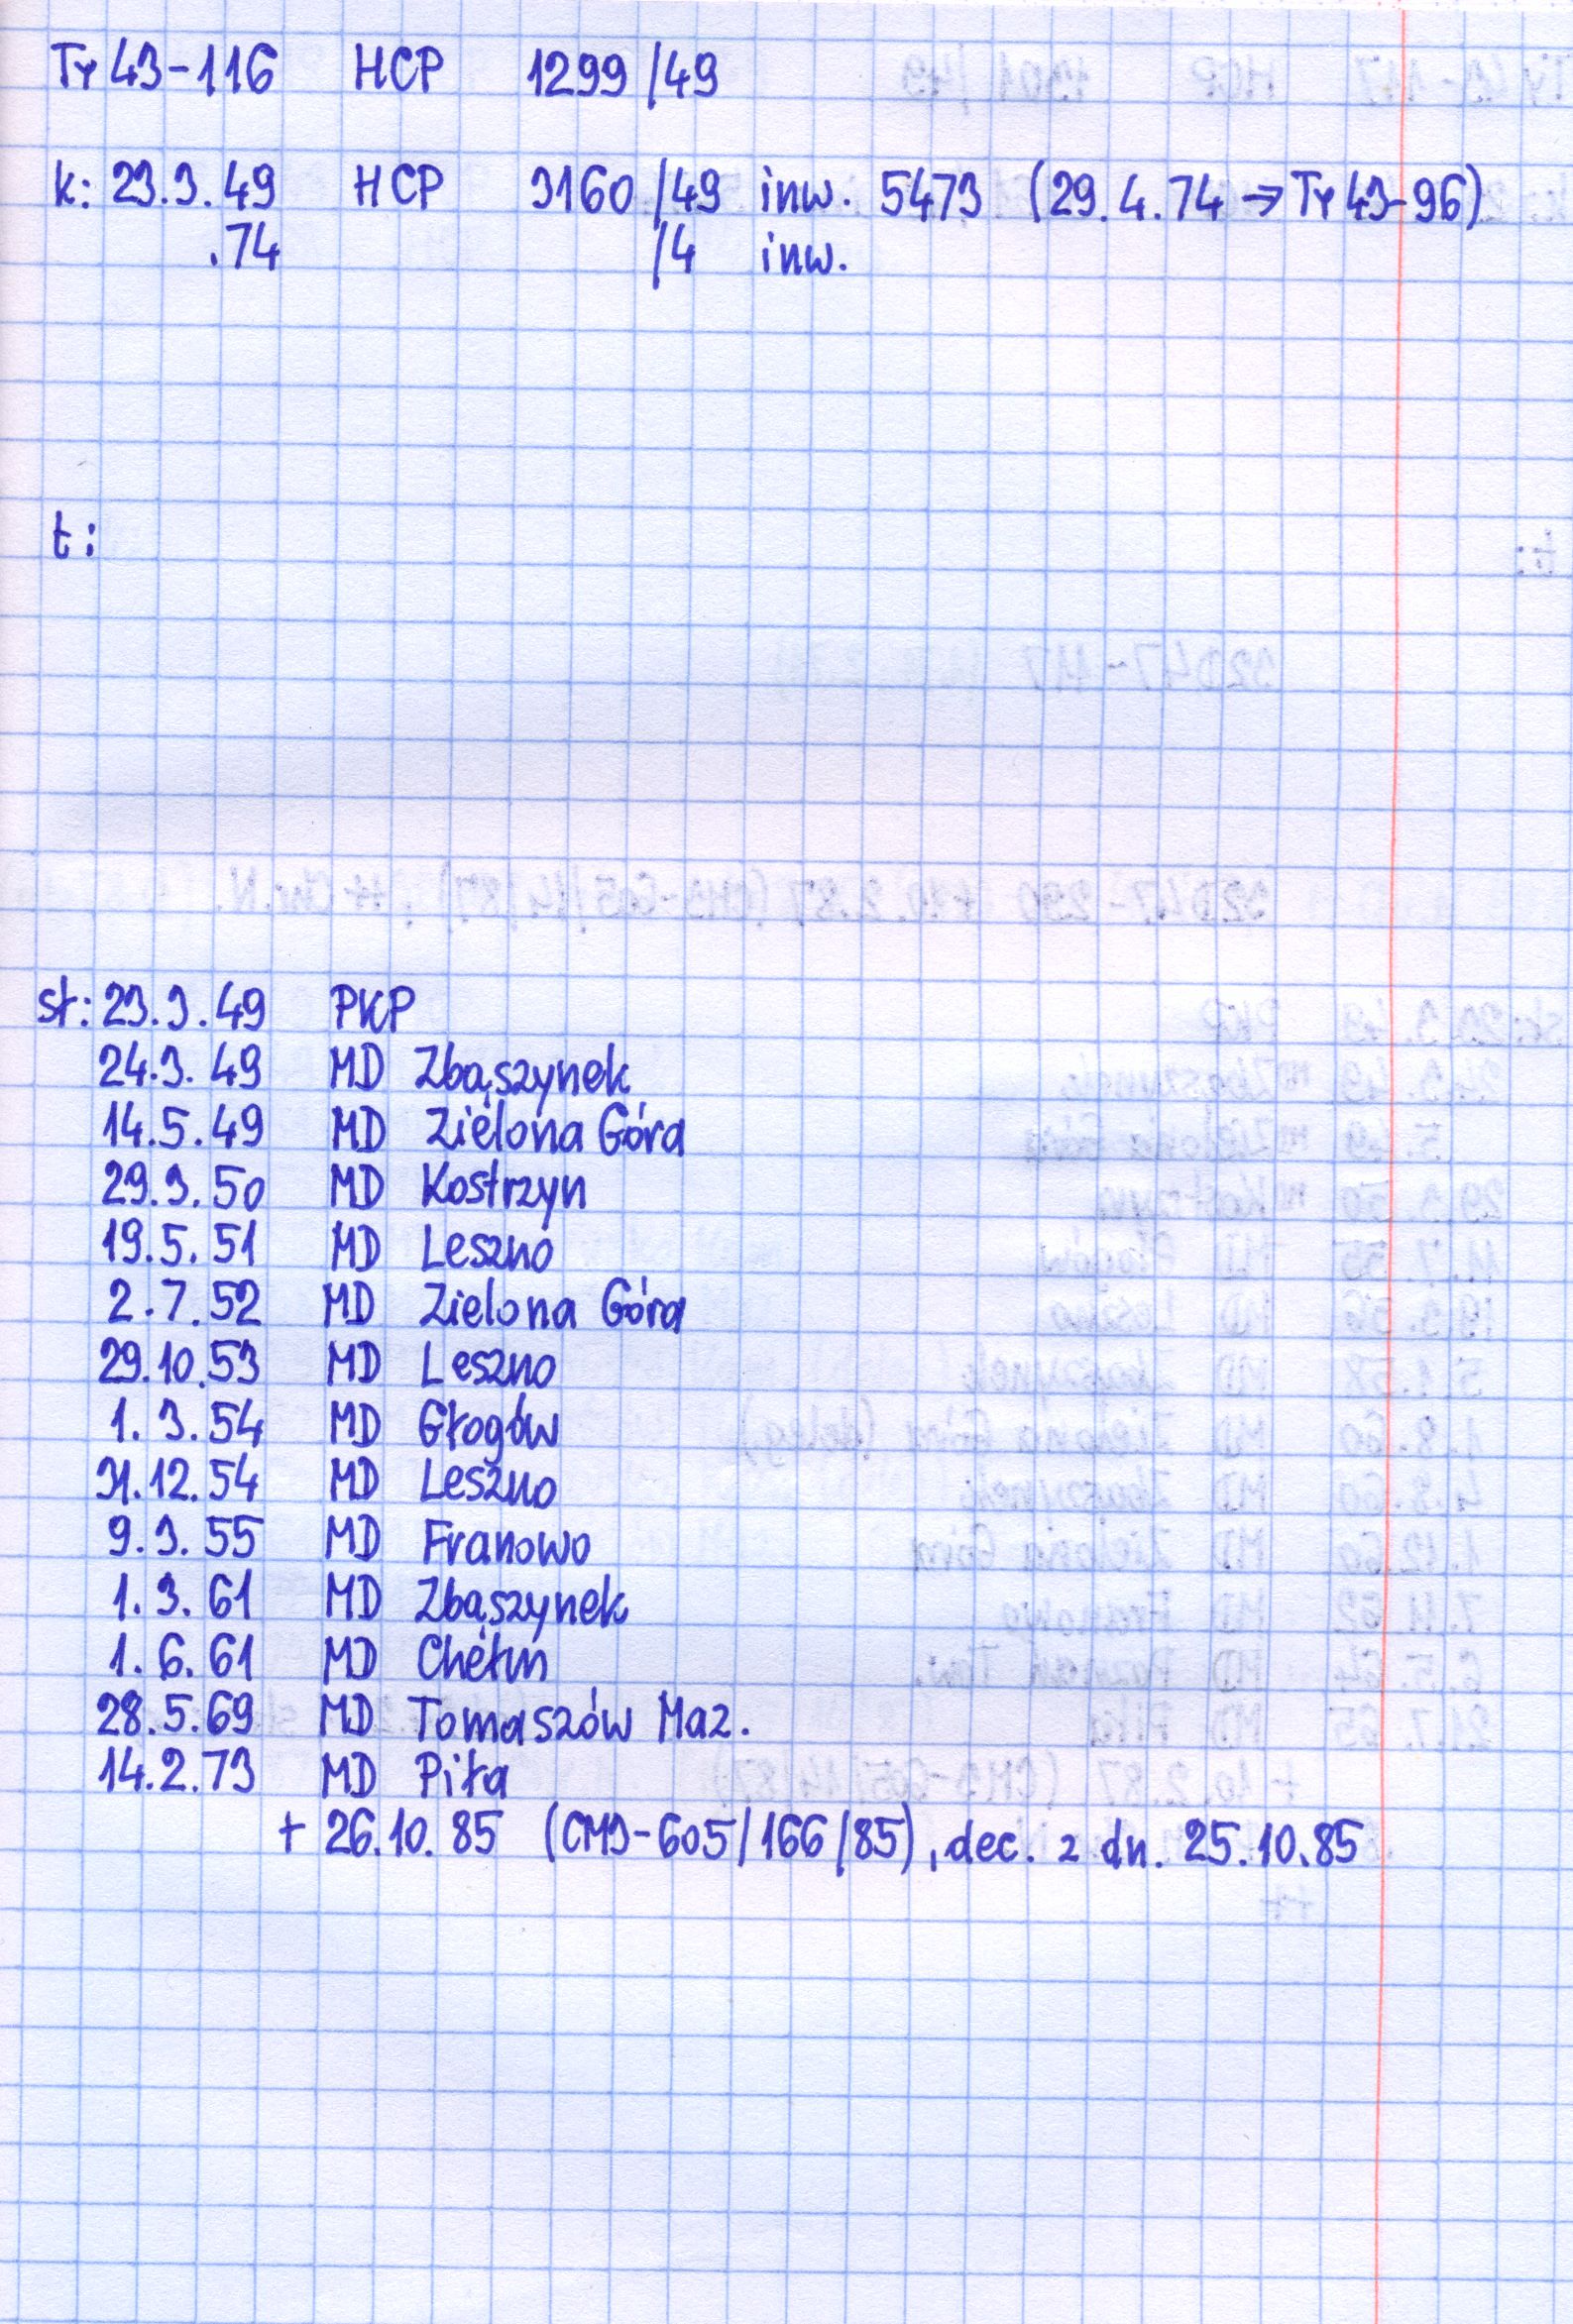 Ty 43-116 HCP 1299/49
k: 23.3.49 HCP 3160/49 inw. 5473 (29.4.74 → Ty 43-96)
.74 /4 inw.
t:
st: 23.3.49 PKP
24.3.49 MD Zbąszynek
14.5.49 MD Zielona Góra
29.3.50 MD Kostrzyn
19.5.51 MD Leszno
2.7.52 MD Zielona Góra
29.10.53 MD Leszno
1.3.54 MD Głogów
31.12.54 MD Leszno
9.3.55 MD Franowo
1.3.61 MD Zbąszynek
1.6.61 MD Chełm
28.5.69 MD Tomaszów Maz.
14.2.73 MD Piła
+ 26.10.85 (CM3-605/166/85), dec. z dn. 25.10.85